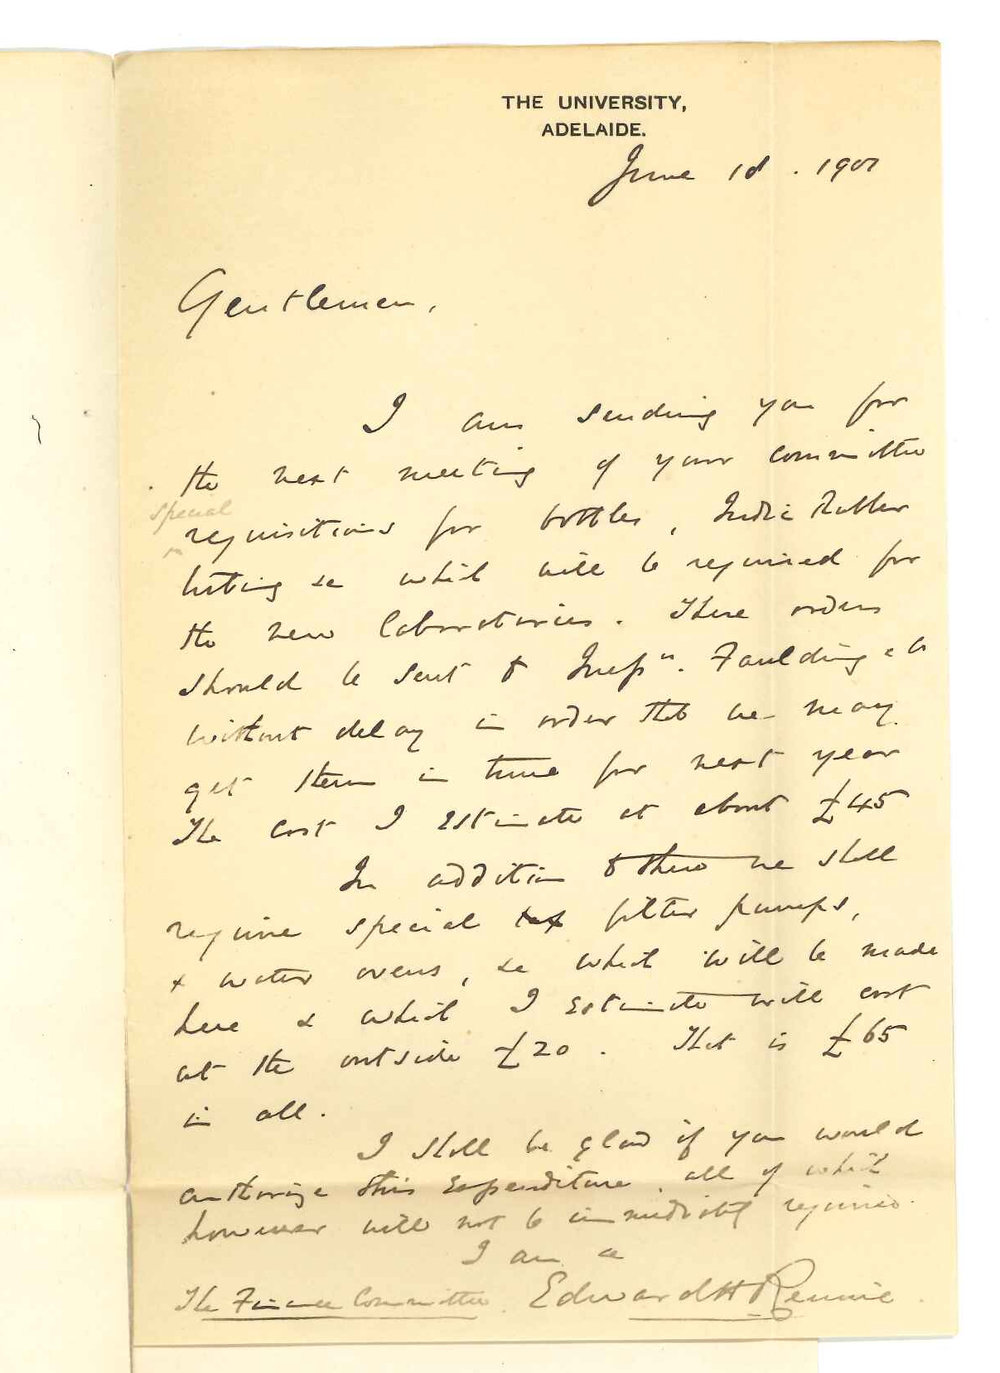 THE UNIVERSITY,
ADELAIDE.
June 18. 1901
Gentlemen,
I am sending you for
the next meeting of your committee
special
requisitions for bottles, India Rubber
tubing &c which will be required for
the new laboratories. These orders
should be sent to Messrs. Faulding & Co
without delay in order that we may
get them in time for next year
The cost I estimate at about £45
In addition to these we shall
require special filter pumps,
& water ovens, &c which will be made
here & which I estimate will cost
at the outside £20. That is £65
in all.
I shall be glad if you would
authorize this expenditure, all of which
however will not be immediately required.
I am &c
The Finance Committee. Edward H Rennie.